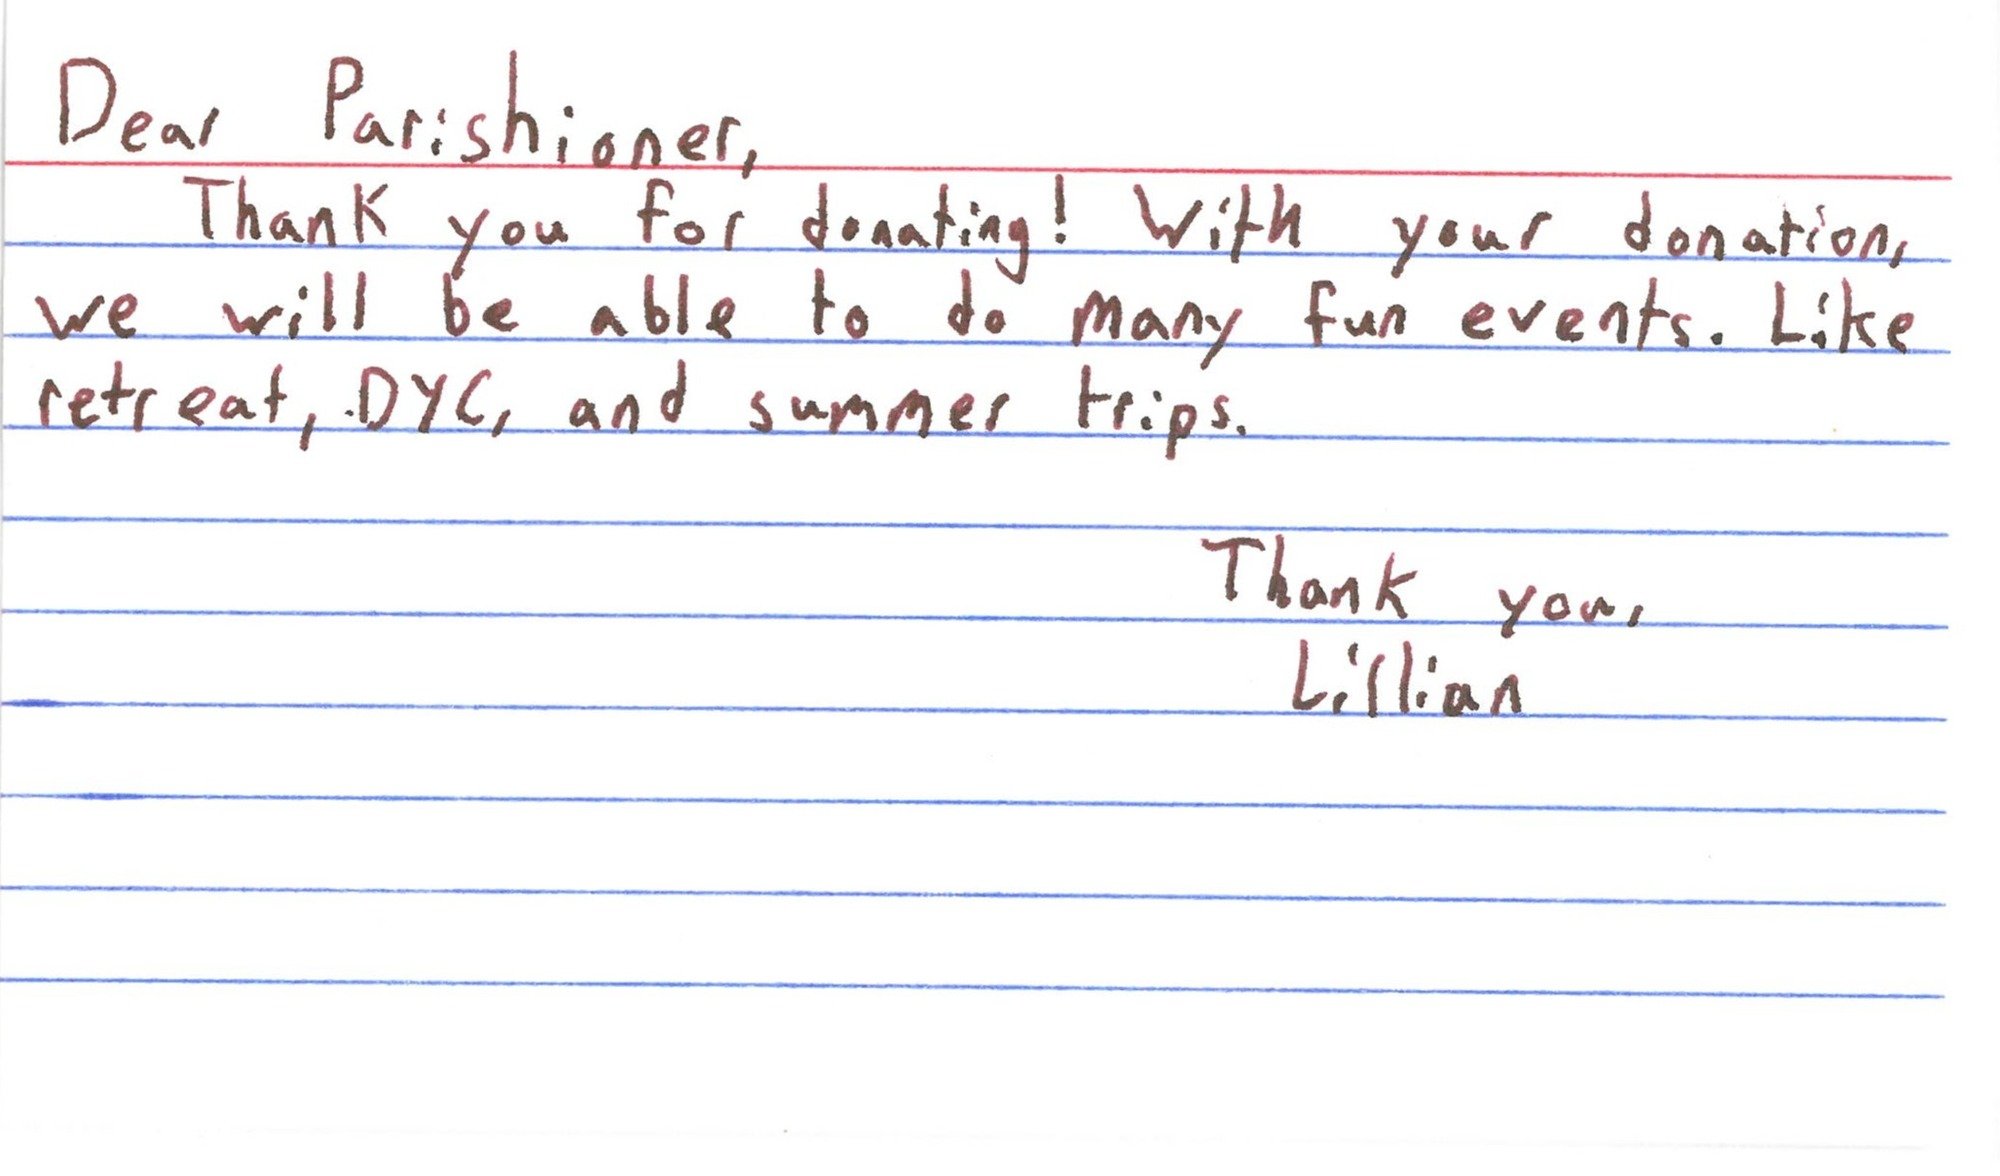 Dear Parishioner,
Thank you for donating! With your donation,
we will be able to do many fun events. Like
retreat, DYC, and summer trips.
Thank you,
Lillian